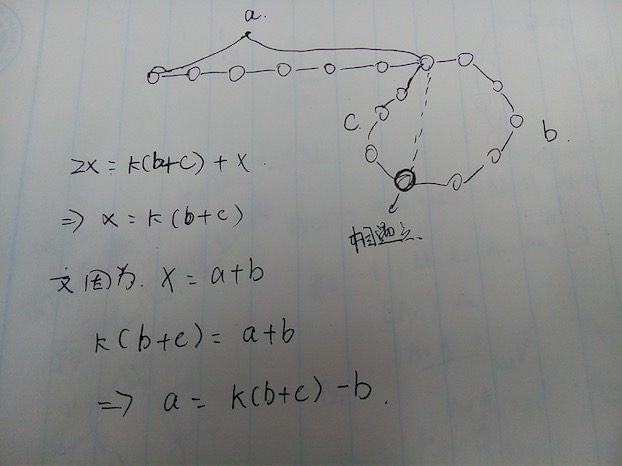 a.
c
b.
相遇点
2x = k(b+c) + x.
=> x = k(b+c)
又因为. x = a+b
k(b+c) = a+b
=> a = k(b+c) -b.